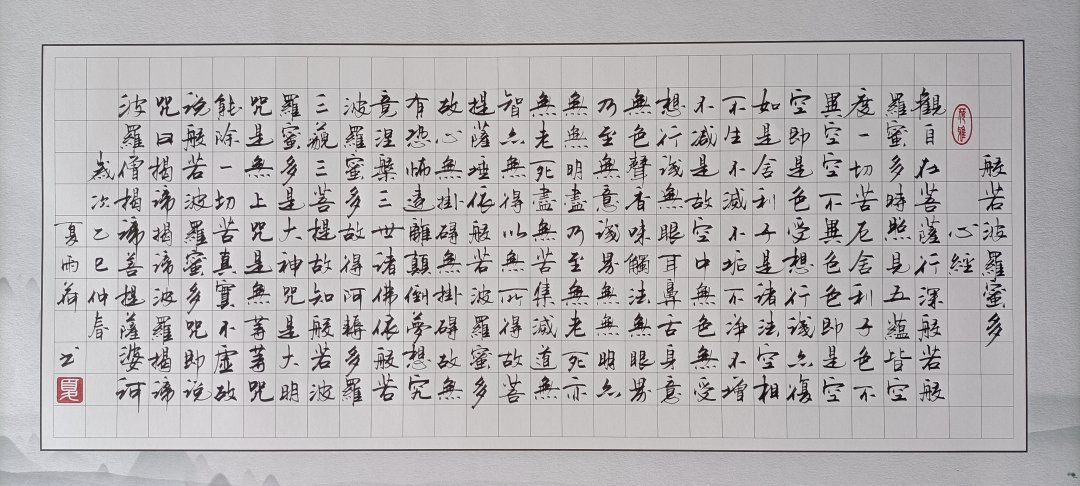 般若波羅蜜多
心經
觀自在菩薩行深般若般
羅蜜多時照見五蘊皆空
度一切苦厄舍利子色不
異空空不異色色即是空
空即是色受想行識亦復
如是舍利子是諸法空相
不生不滅不垢不淨不增
不減是故空中無色無受
想行識無眼耳鼻舌身意
無色聲香味觸法無眼界
乃至無意識界無無明亦
無無明盡乃至無老死亦
無老死盡無苦集滅道無
智亦無得以無所得故菩
提薩埵依般若波羅蜜多
故心無掛礙無掛礙故無
有恐怖遠離顛倒夢想究
竟涅槃三世諸佛依般若
波羅蜜多故得阿耨多羅
三藐三菩提故知般若波
羅蜜多是大神咒是大明
咒是無上咒是無等等咒
能除一切苦真實不虛故
說般若波羅蜜多咒即說
咒曰揭諦揭諦波羅揭諦
波羅僧揭諦菩提薩婆訶
歲次乙巳仲春
夏雨荷书
夏